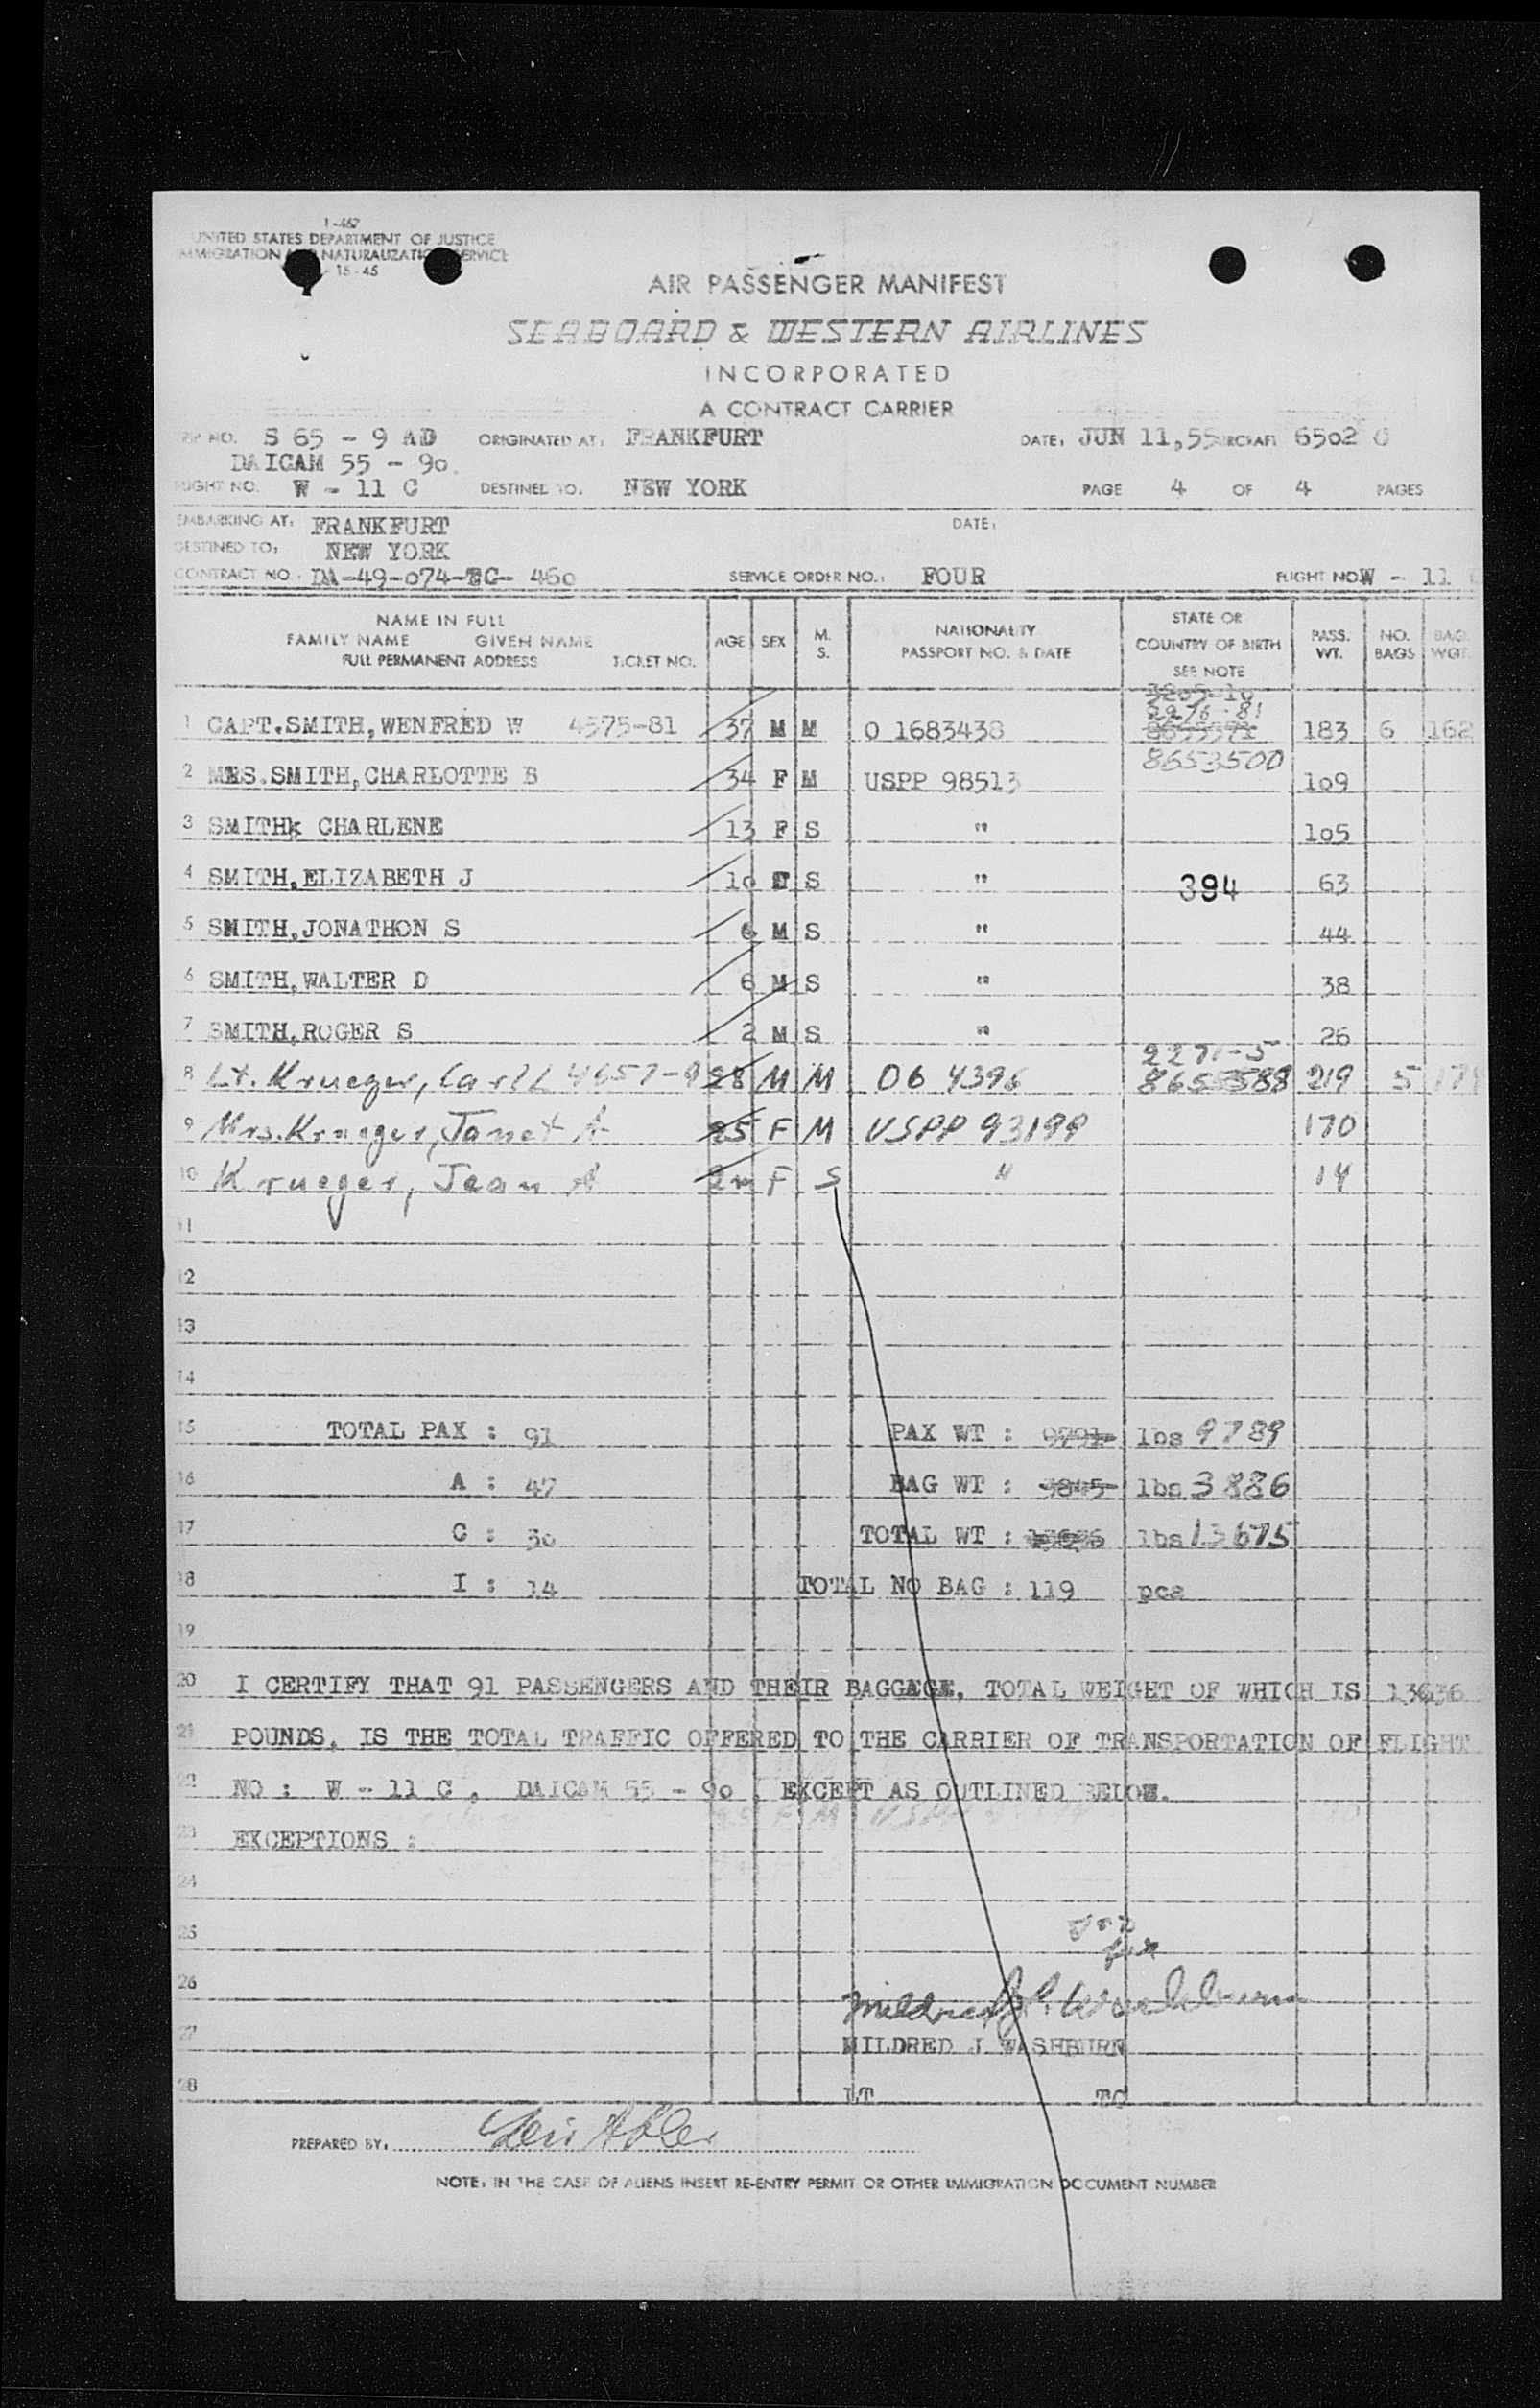 1-467
UNITED STATES DEPARTMENT OF JUSTICE
IMMIGRATION AND NATURALIZATION SERVICE
15-45
AIR PASSENGER MANIFEST
SEABOARD & WESTERN AIRLINES
INCORPORATED
A CONTRACT CARRIER
TRIP NO. S 65 - 9 AD ORIGINATED AT: FRANKFURT DATE: JUN 11,55 AIRCRAFT 6502 C
DAICAM 55 - 9o.
FLIGHT NO. W - 11 C DESTINED TO: NEW YORK PAGE 4 OF 4 PAGES
EMBARKING AT: FRANKFURT DATE:
DESTINED TO: NEW YORK
CONTRACT NO. DA-49-o74-TC- 46o SERVICE ORDER NO.: FOUR FLIGHT NO. W - 11
NAME IN FULL
FAMILY NAME GIVEN NAME
FULL PERMANENT ADDRESS TICKET NO. AGE SEX M. S. NATIONALITY PASSPORT NO. & DATE STATE OR COUNTRY OF BIRTH SEE NOTE PASS. WT. NO. BAGS BAG. WGT.
2276-81
1 CAPT.SMITH,WENFRED W 4575-81 37 M M O 1683438 183 6 162
8653500
2 MRS.SMITH,CHARLOTTE B 34 F M USPP 98513 1o9
3 SMITHk CHARLENE 13 F S " 1o5
4 SMITH,ELIZABETH J 1o F S " 394 63
5 SMITH,JONATHON S 6 M S " 44
6 SMITH,WALTER D 6 M S " 38
7 SMITH,ROGER S 2 M S " 26
2271-5
8 Lt. Krueger, Carl L 4657-9 28 M M O6 4396 8653588 219 5 179
9 Mrs. Krueger, Janet A 25 F M USPP 93199 170
10 Krueger, Jean A 2m F S " 14
11
12
13
14
15 TOTAL PAX : 91 PAX WT : 9791 lbs 9789
16 A : 47 BAG WT : 3845 lbs 3886
17 C : 3o TOTAL WT : 13636 lbs 13675
18 I : 14 TOTAL NO BAG : 119 pcs
19
20 I CERTIFY THAT 91 PASSENGERS AND THEIR BAGGAGE, TOTAL WEIGHT OF WHICH IS 13636
21 POUNDS, IS THE TOTAL TRAFFIC OFFERED TO THE CARRIER OF TRANSPORTATION OF FLIGHT
22 NO : W - 11 C , DAICAM 55 - 9o , EXCEPT AS OUTLINED BELOW.
23 EXCEPTIONS :
24
25
26 Mildred J. Washburn
27 MILDRED J WASHBURN
28 LT TC
PREPARED BY:
NOTE: IN THE CASE OF ALIENS INSERT RE-ENTRY PERMIT OR OTHER IMMIGRATION DOCUMENT NUMBER